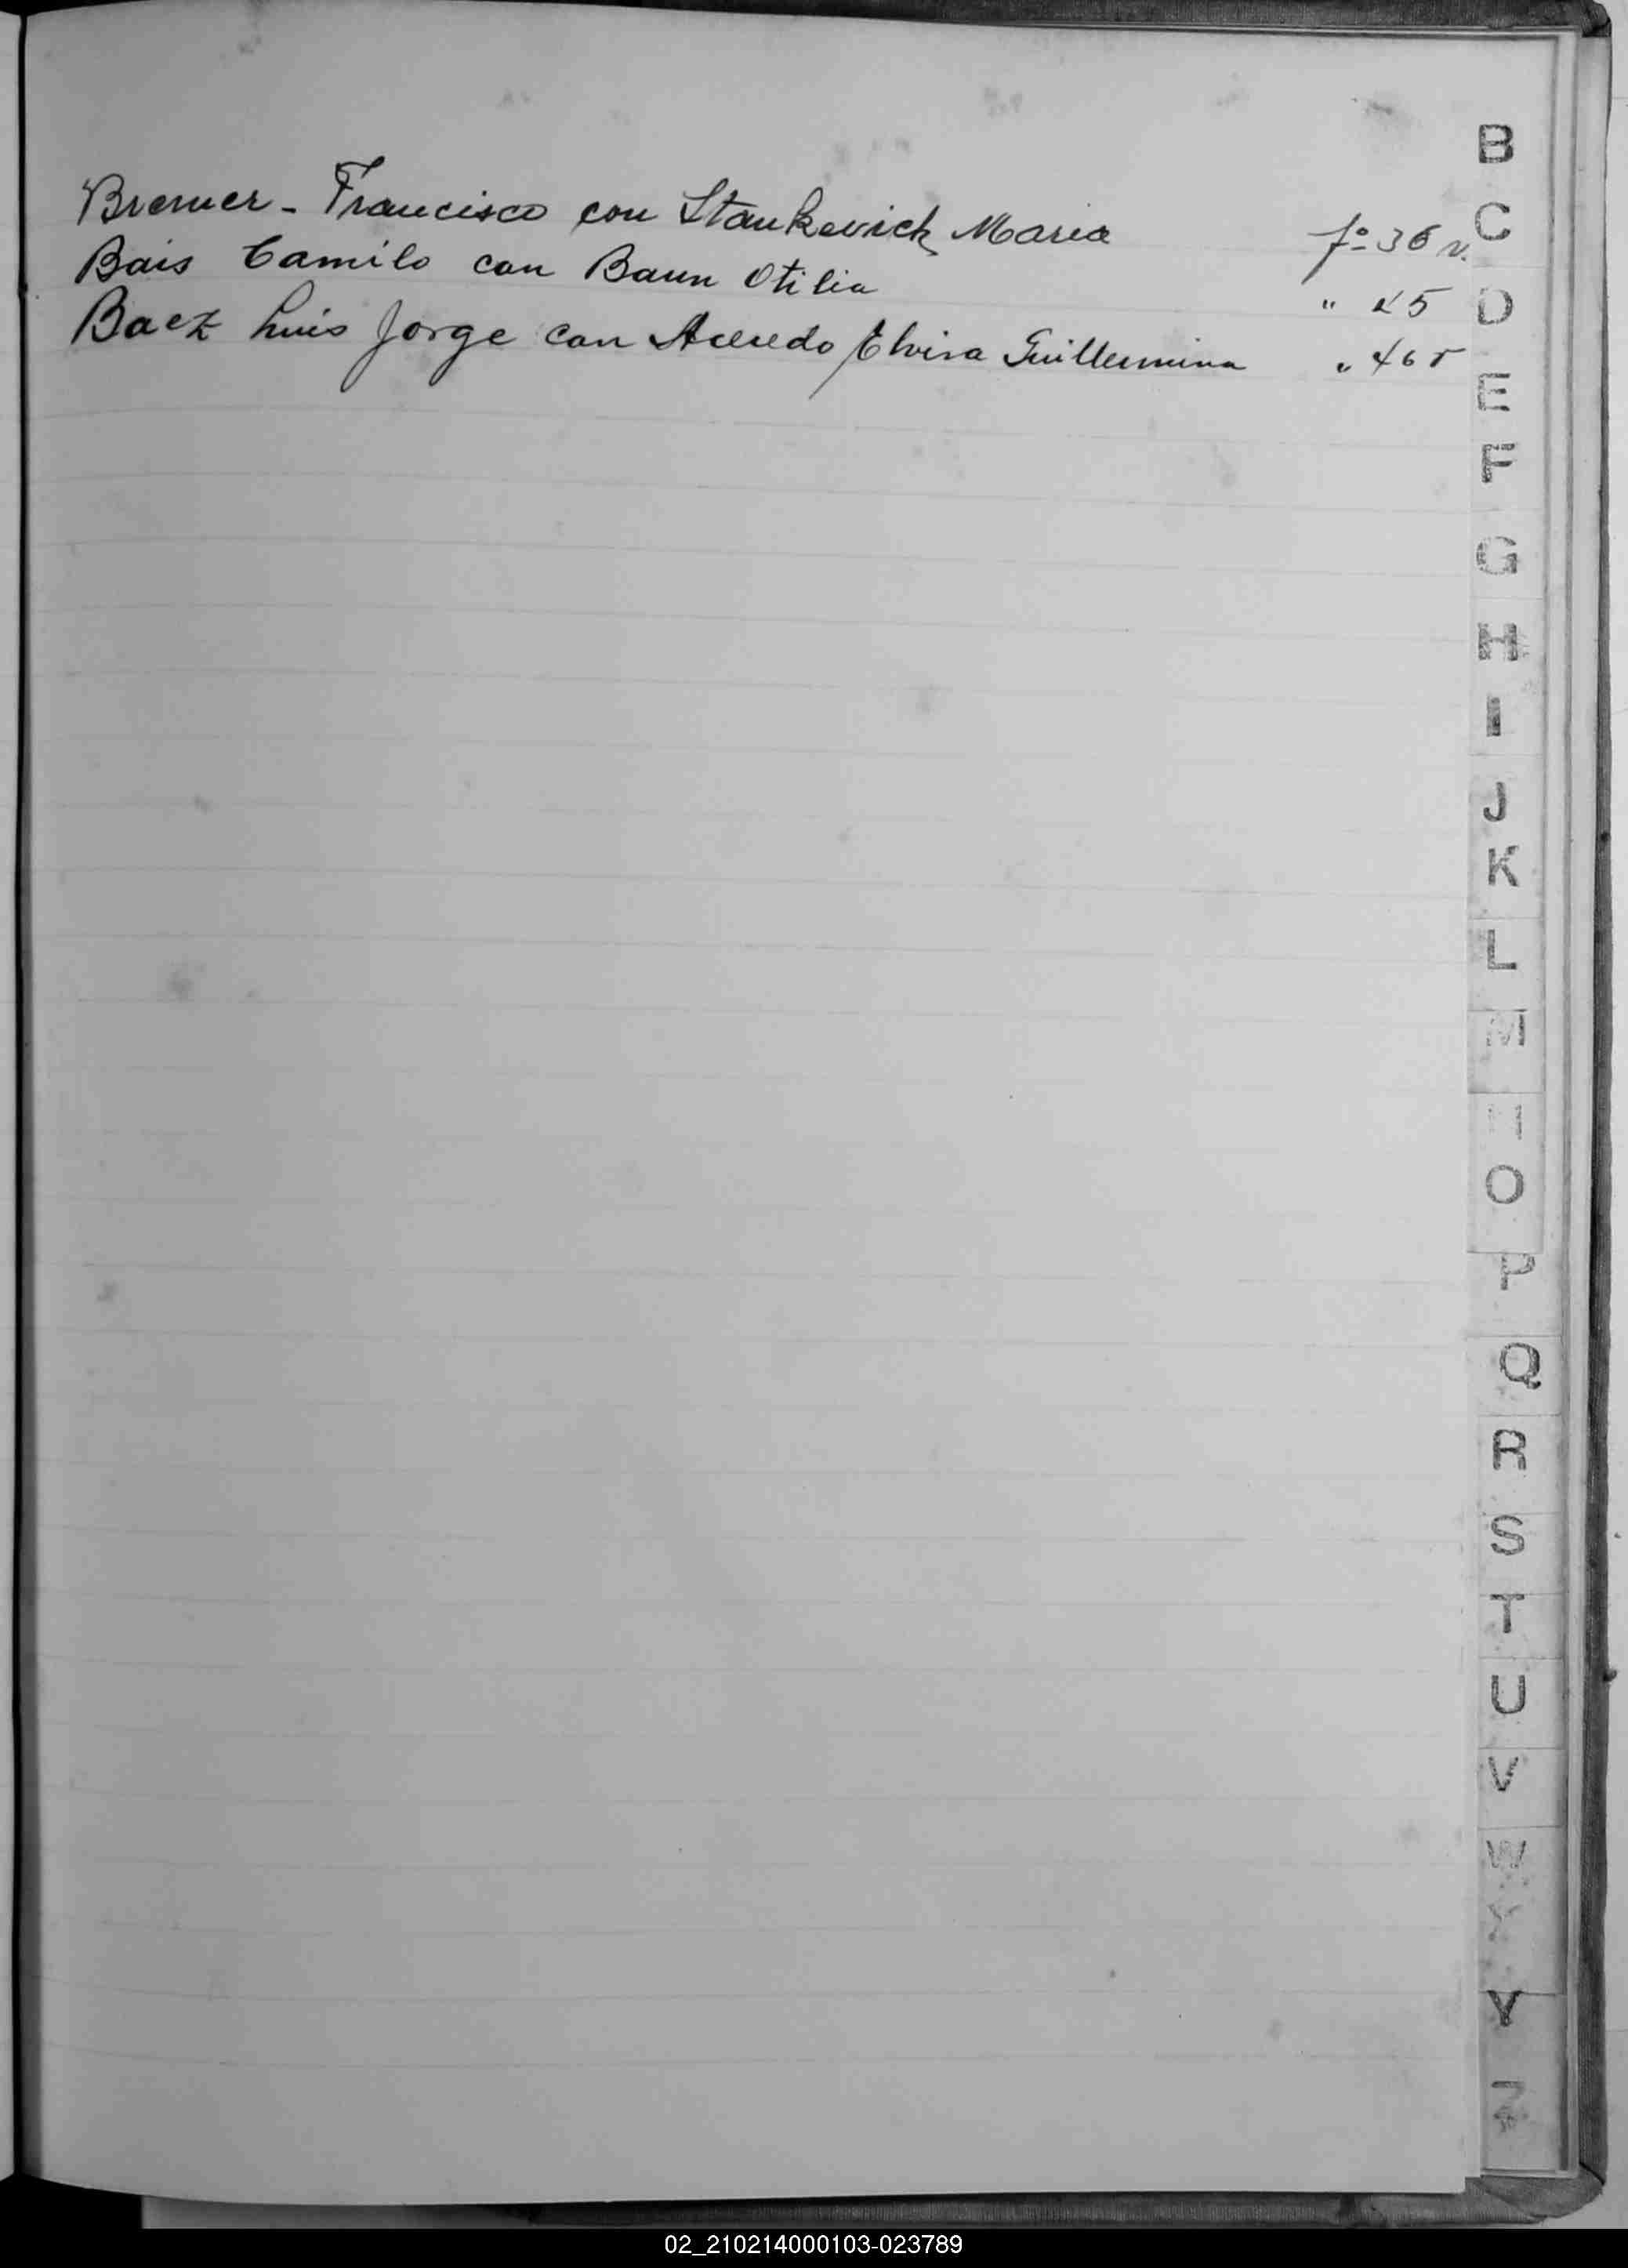 Bremer - Francisco con Stankevich Maria fº 36 v.
Bais Camilo con Baun Otilia " 45
Baez Luis Jorge con Acevedo Elvira Guillermina " 46
B
C
D
E
F
G
H
I
J
K
L
M
N
O
P
Q
R
S
T
U
V
W
Y
Z
02_210214000103-023789